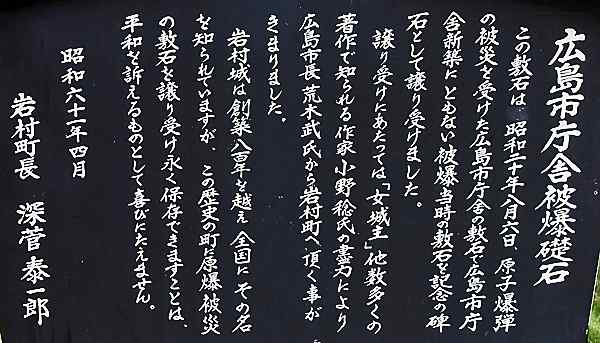 広島市庁舎被爆礎石
この敷石は、昭和二十年八月六日 原子爆弾
の被災を受けた広島市庁舎の敷石で広島市庁
舎新築にともない被爆当時の敷石を記念の碑
石として譲り受けました。
譲り受けにあたっては「女城主」他数多くの
著作で知られる作家 小野稔氏の尽力により
広島市長 荒木武氏から岩村町へ頂く事が
きまりました。
岩村城は創築八百年を越え 全国にその名
を知られていますが、この歴史の町に原爆被災
の敷石を譲り受け永く保存できますことは、
平和を訴えるものとして喜びにたえません。
昭和六十一年四月
岩村町長 深菅泰一郎